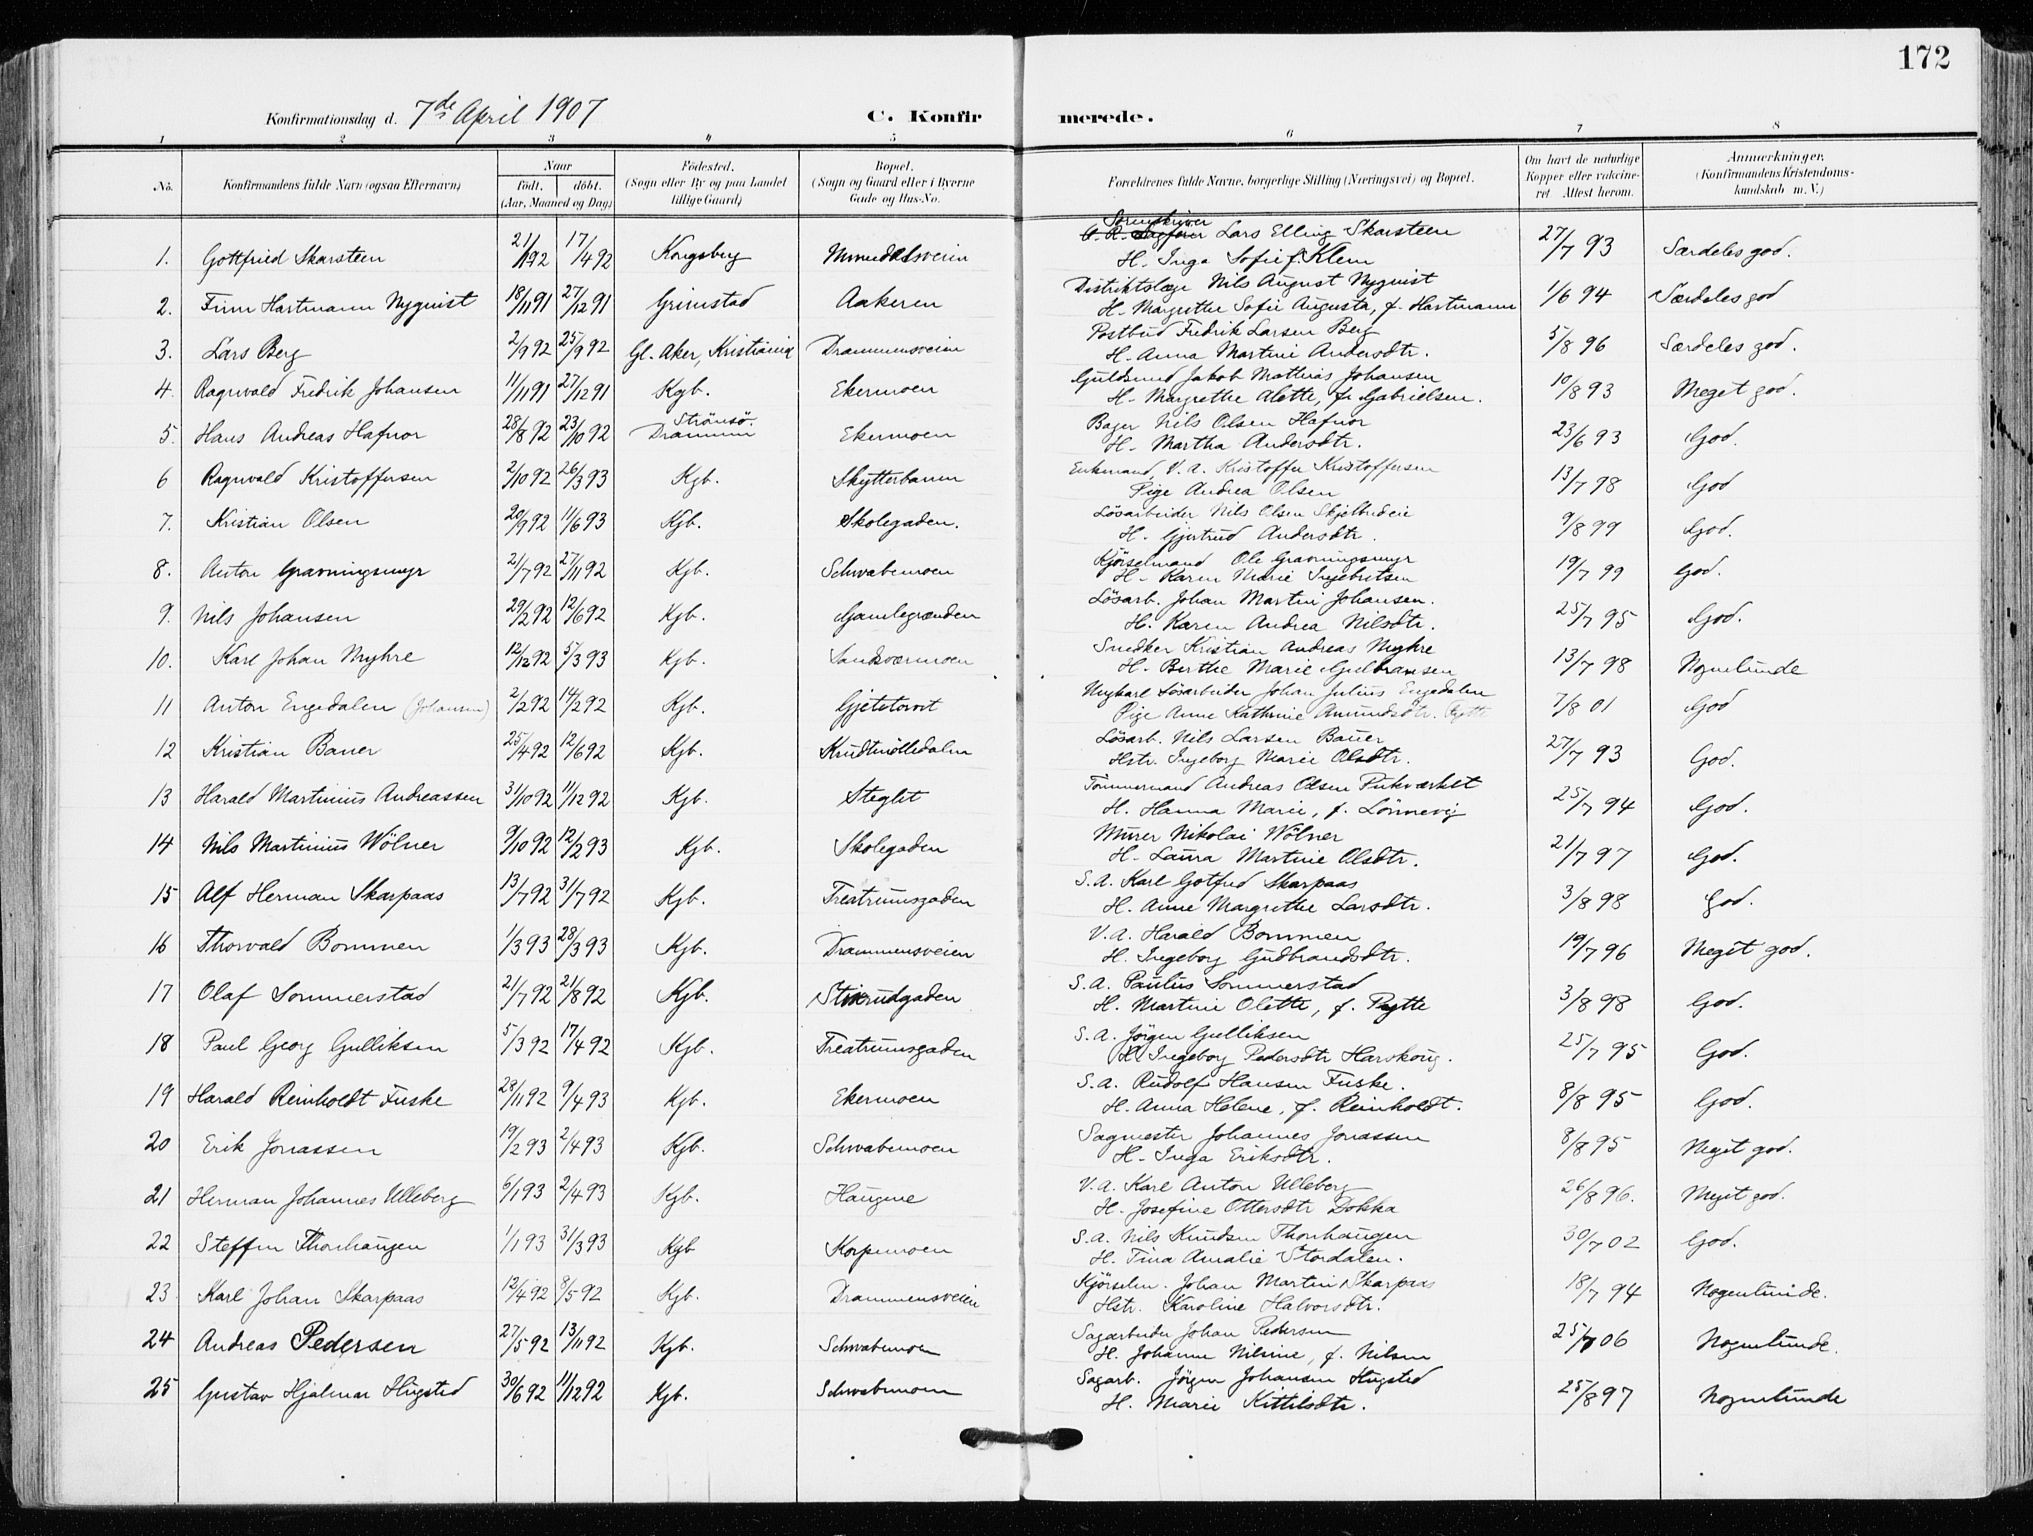 172
Konfirmationsdag d. 7de April 1907
C. Konfirmerede.
1 2 3 4 5 6 7 8
No. Konfirmandens fulde Navn (ogsaa Efternavn) Naar födt. döbt. (Aar, Maaned og Dag) Födested. (Sogn eller By og paa Landet tillige Gaard) Bopæl. (Sogn og Gaard eller i Byerne Gade og Hus-No. Forældrenes fulde Navne, borgerlige Stilling (Næringsvei) og Bopæl. Om havt de naturlige Kopper eller vakcineret. Attest herom. Anmerkninger. (Konfirmandens Kristendomskundskab m. V.)
Sorenskriver
1. Gottfried Skarsteen 21/1 92 17/4 92 Kongsberg Numedalsveien O. R. Sagförer Lars Elling Skarsteen 27/7 93 Særdeles god.
H. Inga Sofie f. Klem
2. Finn Hartmann Nyquist 18/11 91 27/12 91 Grimstad Aakeren Distriktslæge Nils August Nyquist 1/6 94 Særdeles god
H. Margrethe Sofie Augusta, f. Hartmann
3. Lars Berg 2/9 92 25/9 92 Gl. Aker, Kristiania Drammensveien Postbud Fredrik Larsen Berg 5/8 96 Særdeles god.
H. Anna Martine Andersdtr.
4. Ragnvald Fredrik Johansen 11/11 91 27/12 91 Kgb. Ekermoen Guldsmed Jakob Mathias Johansen 10/8 93 Meget god.
H. Margrethe Alette, f. Gabrielsen.
5. Hans Andreas Hafnor 28/8 92 23/10 92 Strömsö. Drammen Ekermoen Bager Nils Olsen Hafnor 23/6 93 God.
H. Martha Andersdtr.
6 Ragnvald Kristoffersen 2/10 92 26/3 93 Kgb. Skytterbanen Enkemand, V. A. Kristoffer Kristoffersen 13/7 98 God
Pige Andrea Olsen
7. Kristian Olsen 20/9 92 11/6 93 Kgb. Skolegaden. Lösarbeider Nils Olsen Skjelbredeie 9/8 99 God.
H. Gjertrud Andersdtr.
8. Anton Gravningsmyr 21/7 92 27/11 92 Kgb. Schwabemoen Kjörselmand Ole Gravningsmyr 19/7 99 God.
H. Karen Marie Ingebretsen
9. Nils Johansen 29/2 92 12/6 92 Kgb. Gamlegrænden Lösarb. Johan Martin Johansen. 25/7 95 God.
H. Karen Andrea Nilsdtr.
10. Karl Johan Myhre 12/12 92 5/3 93 Kgb. Sandsværmoen Snedker Kristian Andreas Myhre 13/7 98 Nogenlunde
H. Berthe Marie Gulbransen
11 Anton Engedalen (Johansen) 2/2 92 14/2 92 Kgb. Gjetetorvet Ungkarl Lösarbeider Johan Julius Engedalen 7/8 01 God
Pige Anne Kathrine Amundsdtr. Rytte
12 Kristian Bauer 25/4 92 12/6 92 Kgb. Krudtmölledalen Lösarb. Nils Larsen Bauer 27/7 93 God.
Hstr. Ingeborg Marie Olsdtr.
13 Harald Martinius Andreassen 31/10 92 11/12 92 Kgb. Steglet Tömmermand Andreas Olsen Pukværket 25/7 94 God.
H. Hanna Marie, f. Lönnevig
14 Nils Martinius Wölner 9/10 92 12/2 93 Kgb. Skolegaden Murer Nikolai Wölner 21/7 97 God.
H. Laura Martine Olsdtr.
15 Alf Herman Skarpaas 13/7 92 31/7 92 Kgb. Treatrumsgaden S. A. Karl Gotfred Skarpaas 3/8 98 God.
H. Anne Margrethe Larsdtr.
16 Thorvald Bommen 1/3 93 28/3 93 Kgb. Drammensveien V. A. Harald Bommen 19/7 96 Meget god.
H. Ingeborg Gudbrandsdtr.
17 Olaf Sommerstad 21/7 92 21/8 92 Kgb. Stinrudgaden S. A. Paulus Sommerstad 3/8 98 God.
H. Martine Olette, f. Rytte
18 Paul Georg Gulliksen 5/3 92 17/4 92 Kgb. Treatrumsgaden S. A. Jörgen Gulliksen 25/7 95 God.
H. Ingeborg Pedersdtr Harskoug.
19 Harald Reinholdt Fuske 28/11 92 9/4 93 Kgb. Ekermoen S. A. Rudolf Hansen Fuske. 8/8 95 God.
H. Anna Helene, f. Reinholdt.
20 Erik Jonassen 19/2 93 2/4 93 Kgb. Schwabemoen Sagmester Johannes Jonassen 8/8 95 Meget god.
H. Inga Eriksdtr.
21 Herman Johannes Ulleberg 6/1 93 2/4 93 Kgb. Haugene V. A. Karl Anton Ulleberg 26/8 96. Meget god.
H. Josefine Ottersdtr Dokka
22 Steffen Thorshaugen 1/1 93 31/3 93 Kgb Korpemoen S. A. Nils Knudsen Thorshaugen 30/7 02 God.
H. Tina Amalie Stordalen.
23 Karl Johan Skarpaas 12/4 92 8/5 92 Kgb. Drammensveien Kjörselm. Johan Martin Skarpaas 18/7 94 Nogenlunde.
Hstr. Karoline Halvorsdtr.
24 Andreas Pedersen 27/5 92 13/11 92 Kgb. Schwabemoen Sagarbeider Johan Pedersen 25/7 06 Nogenlunde.
H. Johanne Nilsine, f. Nilsen
25 Gustav Hjalmar Hugsted 30/6 92 11/12 92 Kgb. Schwabemoen Sagarb. Jörgen Johansen Hugsted 25/8 97 Nogenlunde
H. Marie Kittilsdtr.